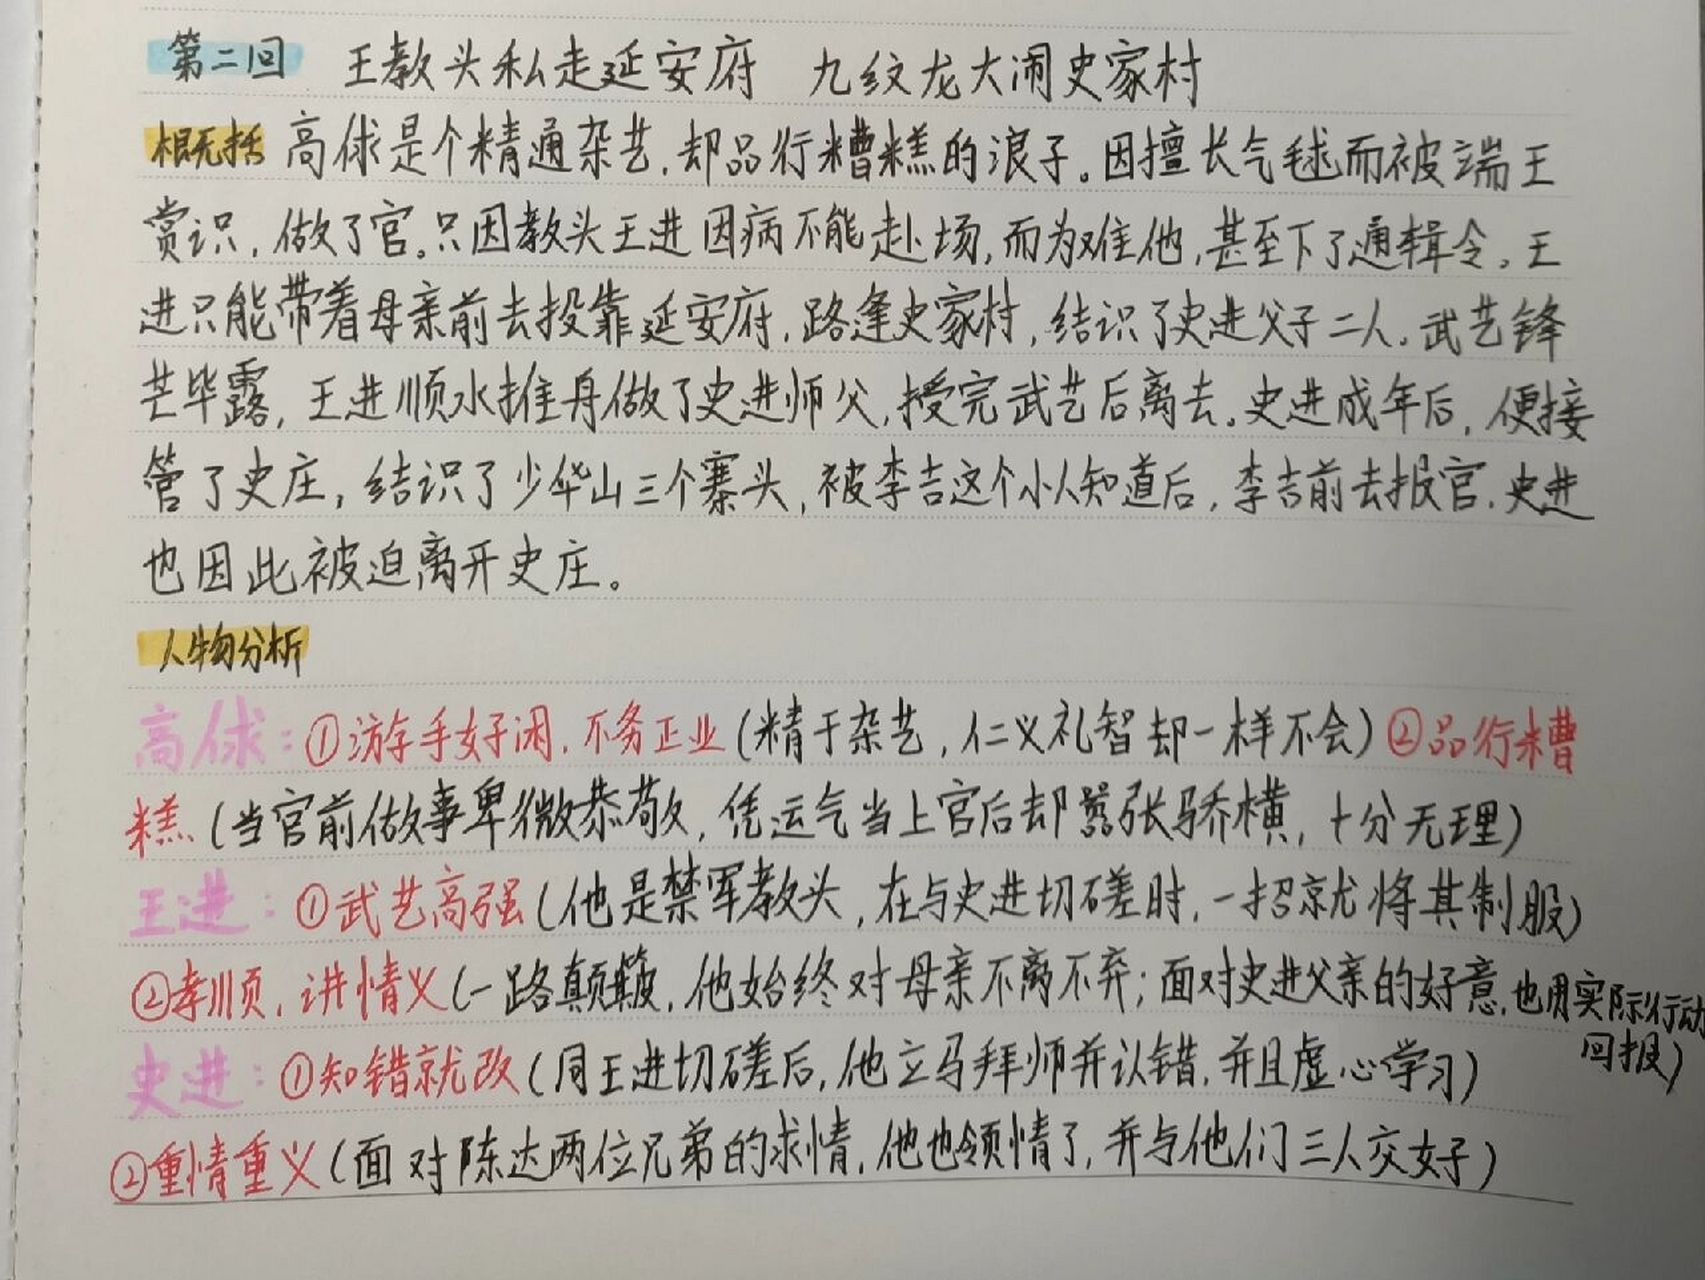 第二回 王教头私走延安府 九纹龙大闹史家村
概括 高俅是个精通杂艺,却品行糟糕的浪子。因擅长气毬而被端王
赏识,做了官。只因教头王进因病不能赴场,而为难他,甚至下了通辑令。王
进只能带着母亲前去投靠延安府,路逢史家村,结识了史进父子二人。武艺锋
芒毕露,王进顺水推舟做了史进师父,授完武艺后离去。史进成年后,便接
管了史庄,结识了少华山三个寨头,被李吉这个小人知道后,李吉前去报官.史进
也因此被迫离开史庄。
人物分析
高俅:①游手好闲.不务正业(精于杂艺,仁义礼智却一样不会)②品行糟
糕(当官前做事卑微恭敬,凭运气当上官后却嚣张骄横,十分无理)
王进:①武艺高强(他是禁军教头,在与史进切磋时,一招就将其制服)
②孝顺,讲情义(一路颠簸,他始终对母亲不离不弃;面对史进父亲的好意,也用实际行动
回报)
史进:①知错就改(同王进切磋后,他立马拜师并认错,并且虚心学习)
②重情重义(面对陈达两位兄弟的求情,他也领情了,并与他们三人交好)